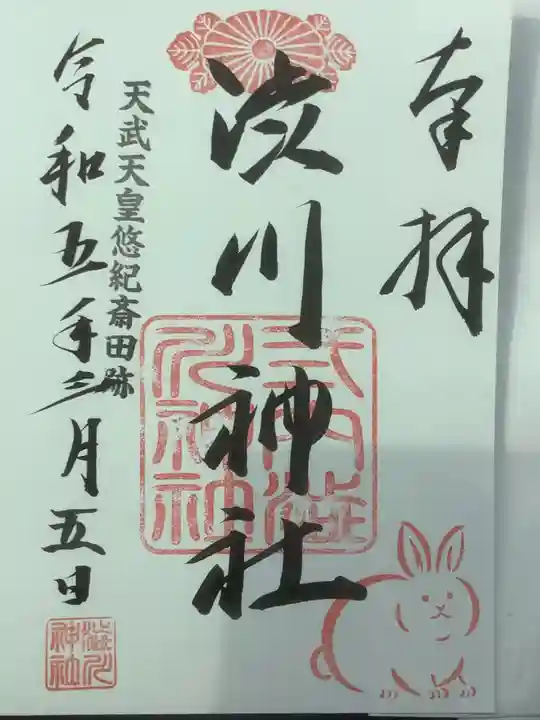 奉拝
渋川神社
式内澁川神社
天武天皇悠紀斎田跡
令和五年三月五日
澁川神社